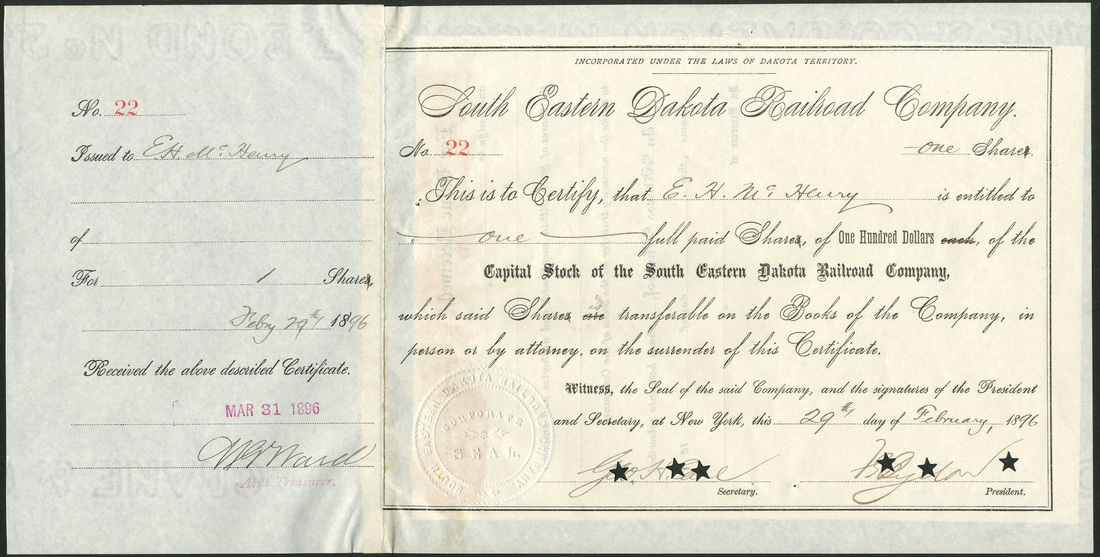 No. 22
Issued to E. H. Mc Henry
of
For 1 Shares,
Febry 29th 1896
Received the above described Certificate.
MAR 31 1896
Ass't Treasurer.
INCORPORATED UNDER THE LAWS OF DAKOTA TERRITORY.
South Eastern Dakota Railroad Company.
No. 22 one Shares.
This is to Certify, that E. H. Mc Henry is entitled to
one full paid Shares, of One Hundred Dollars each, of the
Capital Stock of the South Eastern Dakota Railroad Company,
which said Shares are transferable on the Books of the Company, in
person or by attorney, on the surrender of this Certificate.
Witness, the Seal of the said Company, and the signatures of the President
and Secretary, at New York, this 29th day of February, 1896
Secretary. President.
SOUTH EASTERN DAKOTA RAILROAD COMPANY
CORPORATE
SEAL